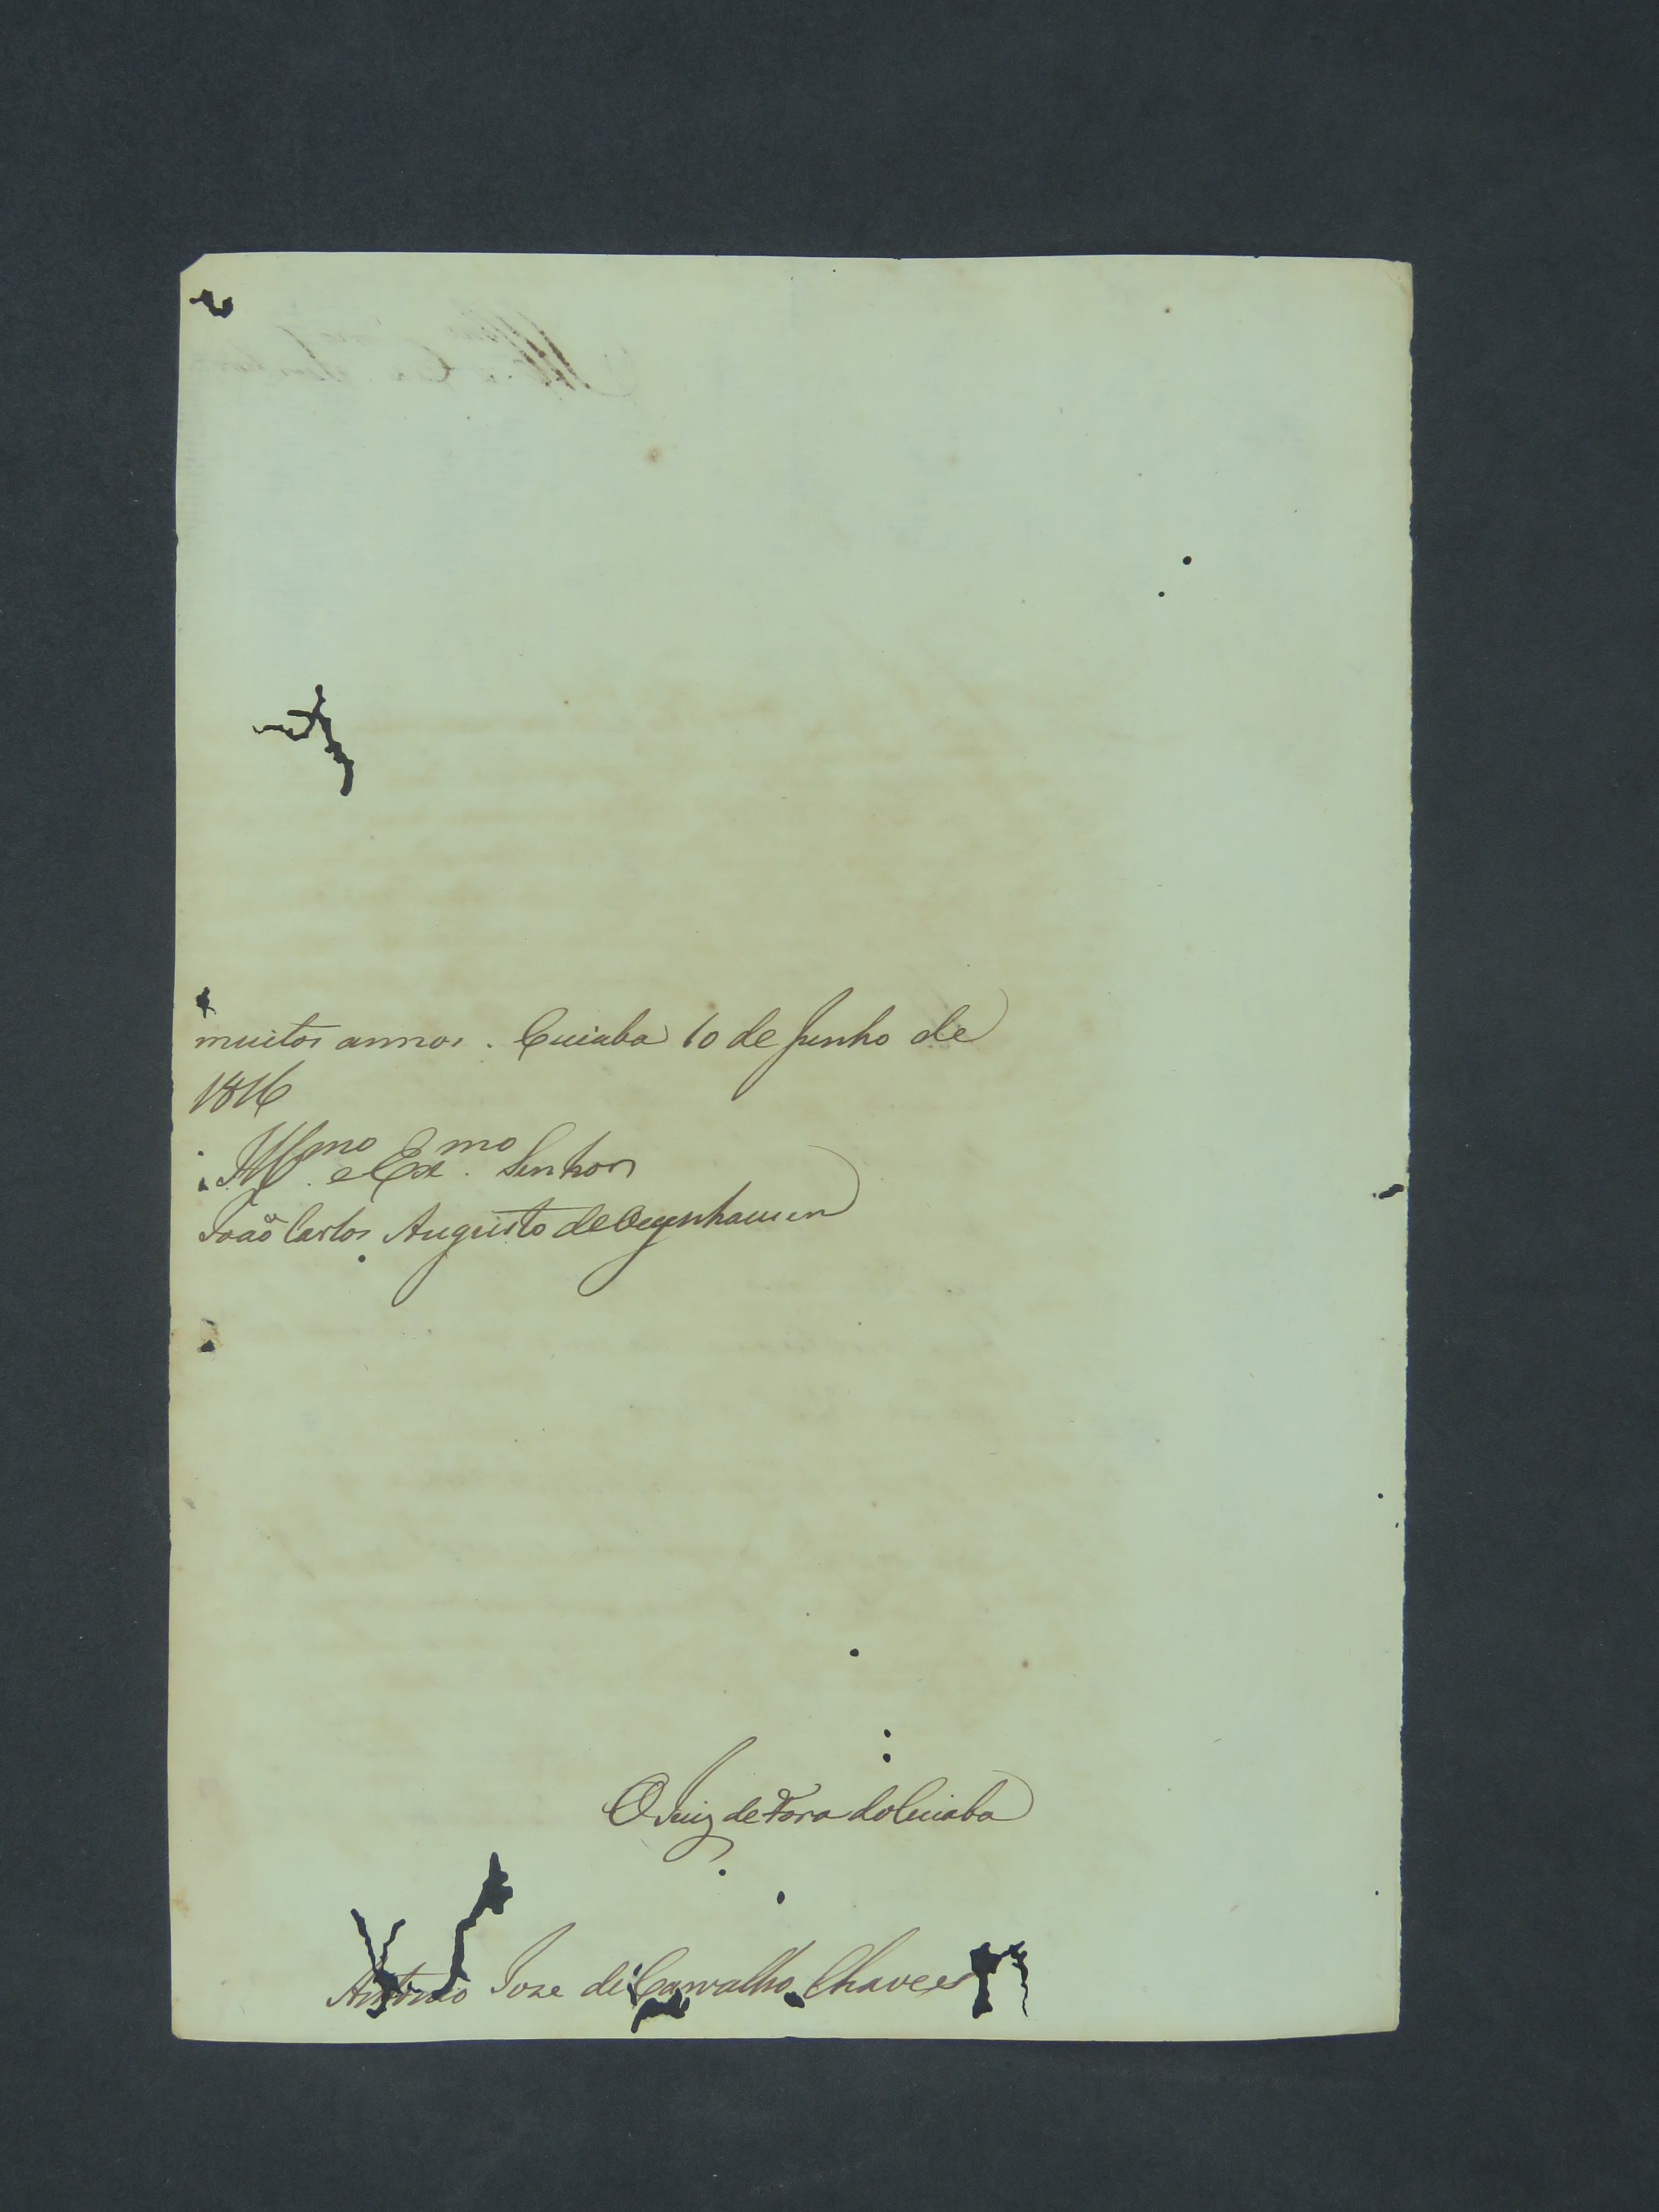 muitos annos. Cuiaba 10 de Junho de
1816
Illmo. e Exmo. Senhor
João Carlos Augusto de Oeynhausen
O Juiz de Fora do Cuiaba
Antonio Joze de Carvalho Chaves